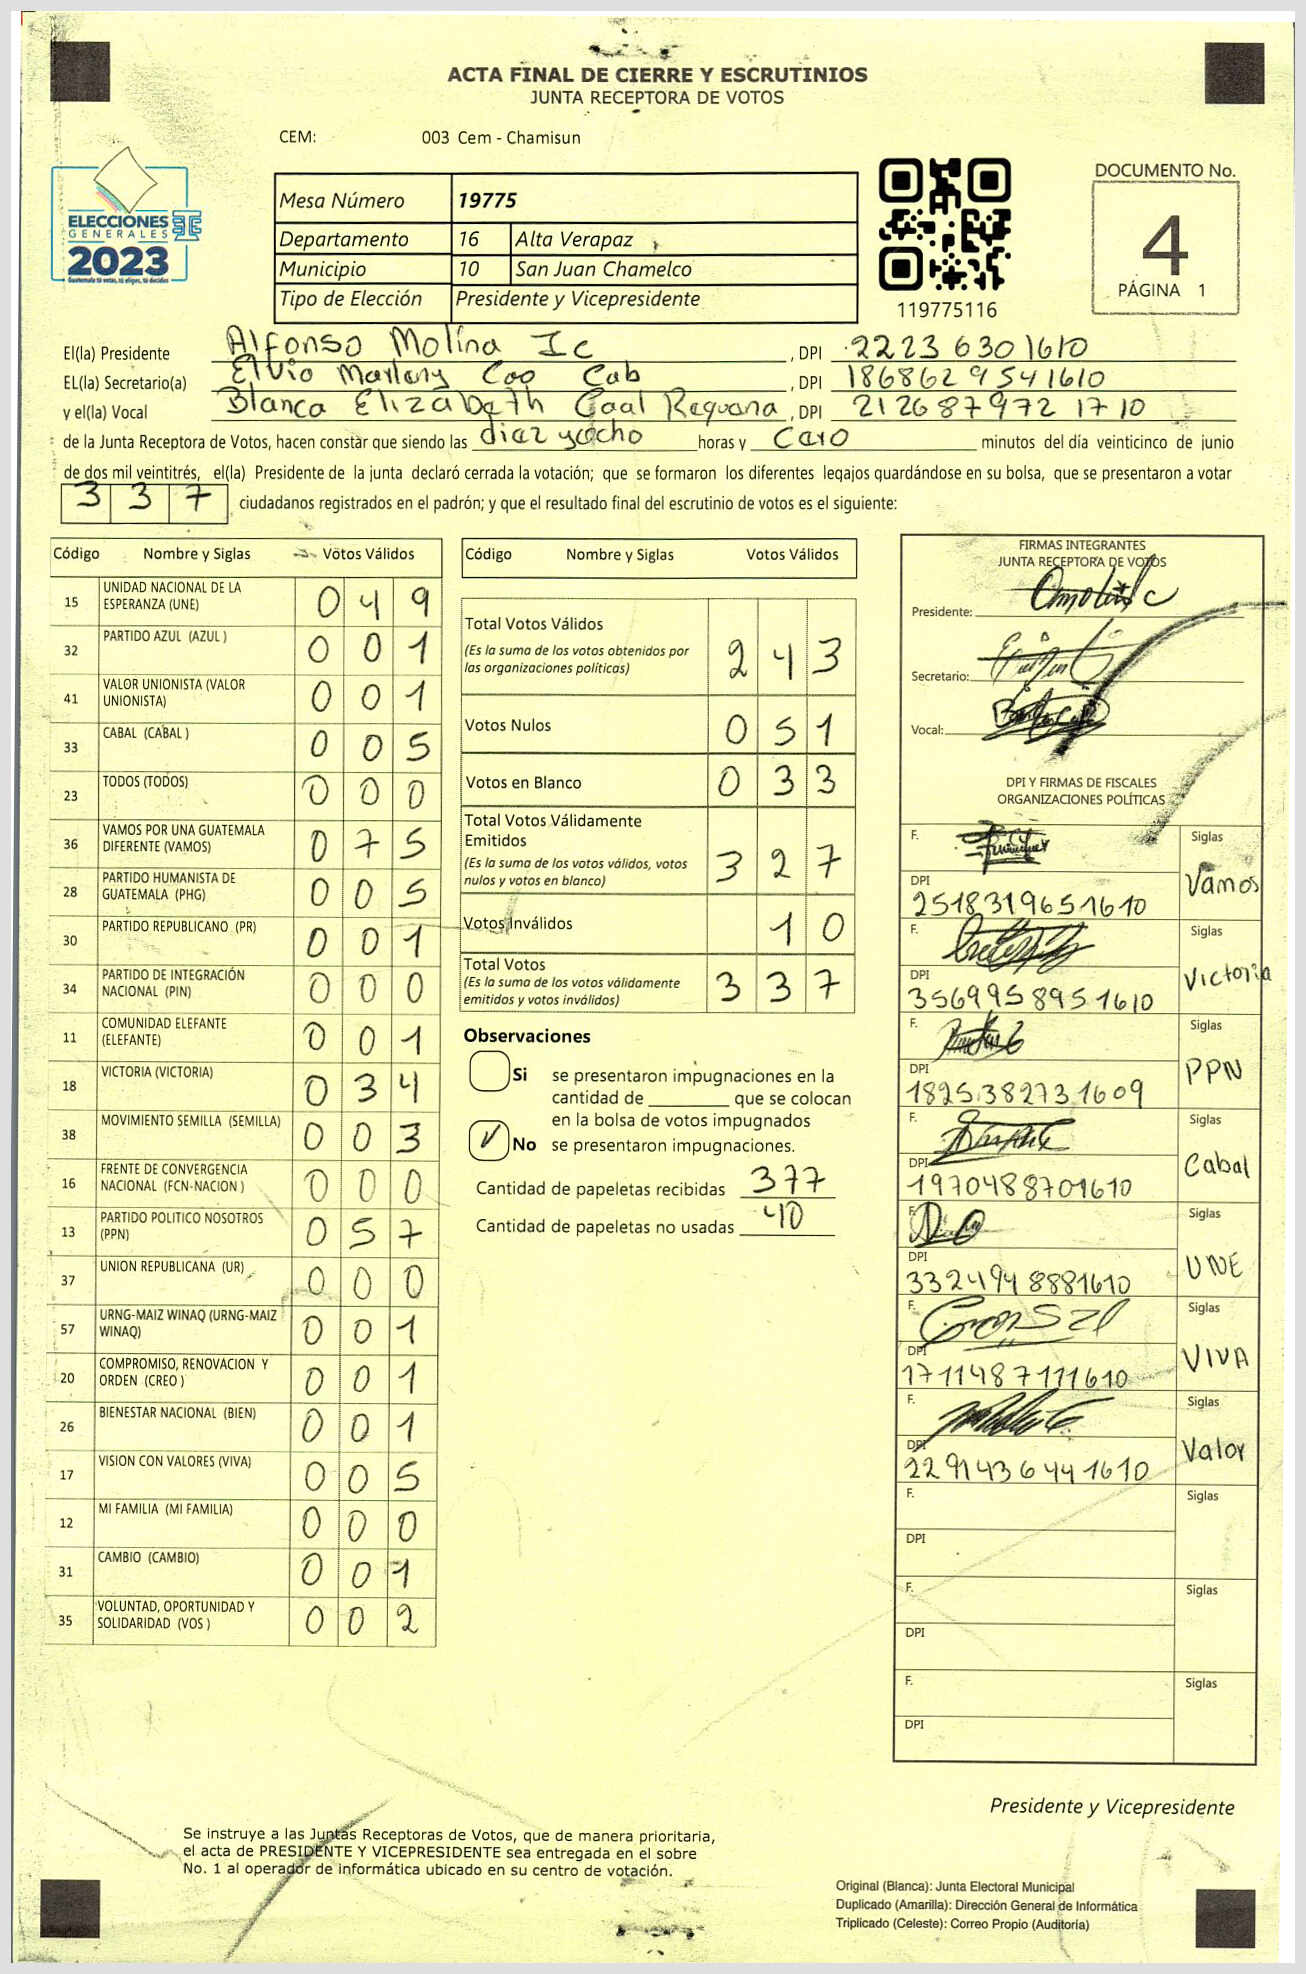 ACTA FINAL DE CIERRE Y ESCRUTINIOS
JUNTA RECEPTORA DE VOTOS
CEM: 003 Cem - Chamisun
ELECCIONES
GENERALES
2023
Guatemala tú votas, tú eliges, tú decides
Mesa Número 19775
Departamento 16 Alta Verapaz
Municipio 10 San Juan Chamelco
Tipo de Elección Presidente y Vicepresidente
119775116
DOCUMENTO No.
4
PÁGINA 1
El(la) Presidente Alfonso Molina Ic, DPI 22236301610
EL(la) Secretario(a) Elvio Marleny Coo Cab, DPI 1868629541610
y el(la) Vocal Blanca Elizabeth Caal Requena, DPI 2126879721710
de la Junta Receptora de Votos, hacen constar que siendo las diez yocho horas y Cero minutos del día veinticinco de junio
de dos mil veintitrés, el(la) Presidente de la junta declaró cerrada la votación; que se formaron los diferentes legajos guardándose en su bolsa, que se presentaron a votar
3 3 7 ciudadanos registrados en el padrón; y que el resultado final del escrutinio de votos es el siguiente:
Código Nombre y Siglas Votos Válidos
15 UNIDAD NACIONAL DE LA ESPERANZA (UNE) 0 4 9
32 PARTIDO AZUL (AZUL ) 0 0 1
41 VALOR UNIONISTA (VALOR UNIONISTA) 0 0 1
33 CABAL (CABAL ) 0 0 5
23 TODOS (TODOS) 0 0 0
36 VAMOS POR UNA GUATEMALA DIFERENTE (VAMOS) 0 7 5
28 PARTIDO HUMANISTA DE GUATEMALA (PHG) 0 0 5
30 PARTIDO REPUBLICANO (PR) 0 0 1
34 PARTIDO DE INTEGRACIÓN NACIONAL (PIN) 0 0 0
11 COMUNIDAD ELEFANTE (ELEFANTE) 0 0 1
18 VICTORIA (VICTORIA) 0 3 4
38 MOVIMIENTO SEMILLA (SEMILLA) 0 0 3
16 FRENTE DE CONVERGENCIA NACIONAL (FCN-NACION ) 0 0 0
13 PARTIDO POLITICO NOSOTROS (PPN) 0 5 7
37 UNION REPUBLICANA (UR) 0 0 0
57 URNG-MAIZ WINAQ (URNG-MAIZ WINAQ) 0 0 1
20 COMPROMISO, RENOVACION Y ORDEN (CREO ) 0 0 1
26 BIENESTAR NACIONAL (BIEN) 0 0 1
17 VISION CON VALORES (VIVA) 0 0 5
12 MI FAMILIA (MI FAMILIA) 0 0 0
31 CAMBIO (CAMBIO) 0 0 1
35 VOLUNTAD, OPORTUNIDAD Y SOLIDARIDAD (VOS ) 0 0 2
Código Nombre y Siglas Votos Válidos
Total Votos Válidos
(Es la suma de los votos obtenidos por
las organizaciones politicas) 2 4 3
Votos Nulos 0 5 1
Votos en Blanco 0 3 3
Total Votos Válidamente
Emitidos
(Es la suma de los votos válidos, votos
nulos y votos en blanco) 3 2 7
Votos Inválidos 1 0
Total Votos
(Es la suma de los votos válidamente
emitidos y votos inválidos) 3 3 7
Observaciones
Si se presentaron impugnaciones en la
cantidad de ________ que se colocan
en la bolsa de votos impugnados
No se presentaron impugnaciones.
Cantidad de papeletas recibidas 377
Cantidad de papeletas no usadas 40
FIRMAS INTEGRANTES
JUNTA RECEPTORA DE VOTOS
Presidente:
Secretario:
Vocal:
DPI Y FIRMAS DE FISCALES
ORGANIZACIONES POLÍTICAS
F. Siglas Vamos
DPI 2518319651610
F. Siglas Victoria
DPI 3569958951610
F. Siglas PPN
DPI 1825382731609
F. Siglas Cabal
DPI 1970488701610
F. Siglas UNE
DPI 3324948881610
F. Siglas VIVA
DPI 1711487111610
F. Siglas Valor
DPI 2291436441610
F. Siglas
DPI
F. Siglas
DPI
F. Siglas
DPI
Presidente y Vicepresidente
Se instruye a las Juntas Receptoras de Votos, que de manera prioritaria,
el acta de PRESIDENTE Y VICEPRESIDENTE sea entregada en el sobre
No. 1 al operador de informática ubicado en su centro de votación.
Original (Blanca): Junta Electoral Municipal
Duplicado (Amarilla): Dirección General de Informática
Triplicado (Celeste): Correo Propio (Auditoría)